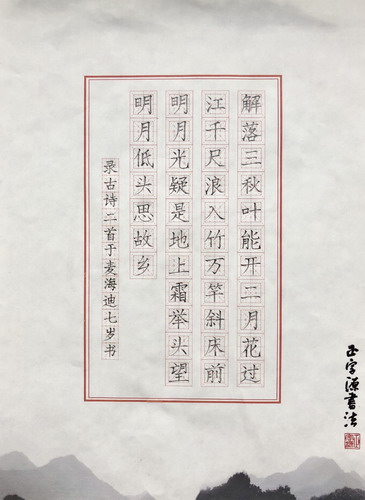 解落三秋叶能开二月花过
江千尺浪入竹万竿斜床前
明月光疑是地上霜举头望
明月低头思故乡
录古诗二首于麦海迪七岁书
正字源書法